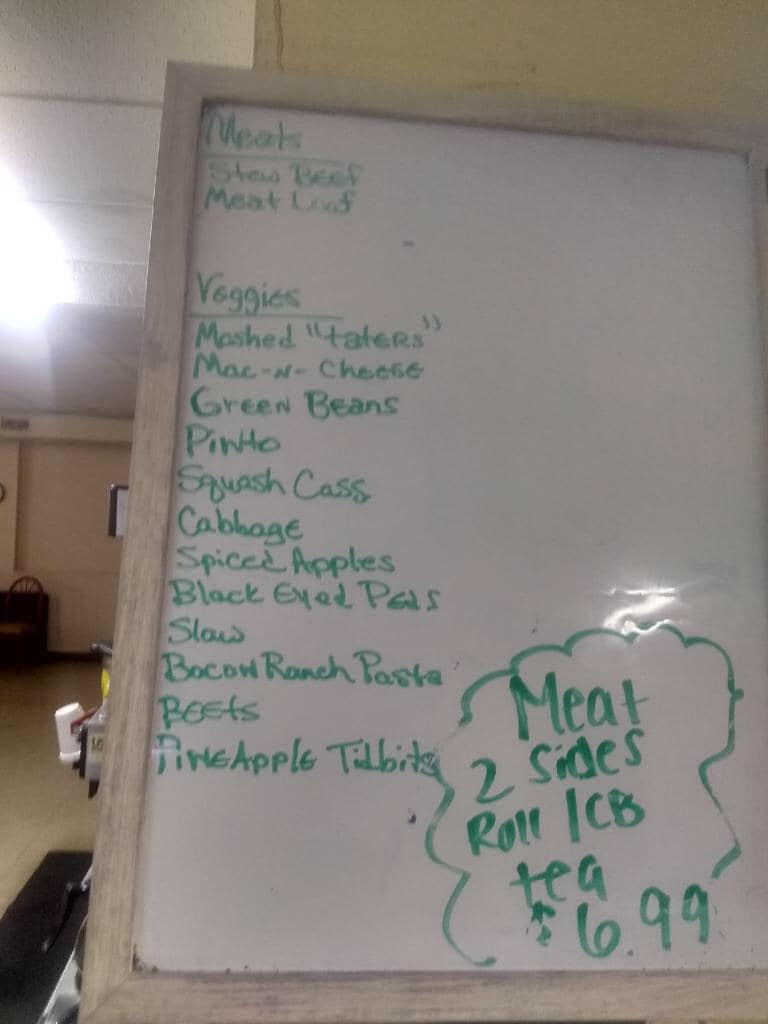 Meats
Stew Beef
Meat Loaf
Veggies
Mashed "taters"
Mac-N-Cheese
Green Beans
Pinto
Squash Cass
Cabbage
Spiced Apples
Black Eyed Peas
Slaw
Bacon Ranch Pasta
Beets
PineApple Tidbits
Meat
2 Sides
Roll / CB
tea
$6.99